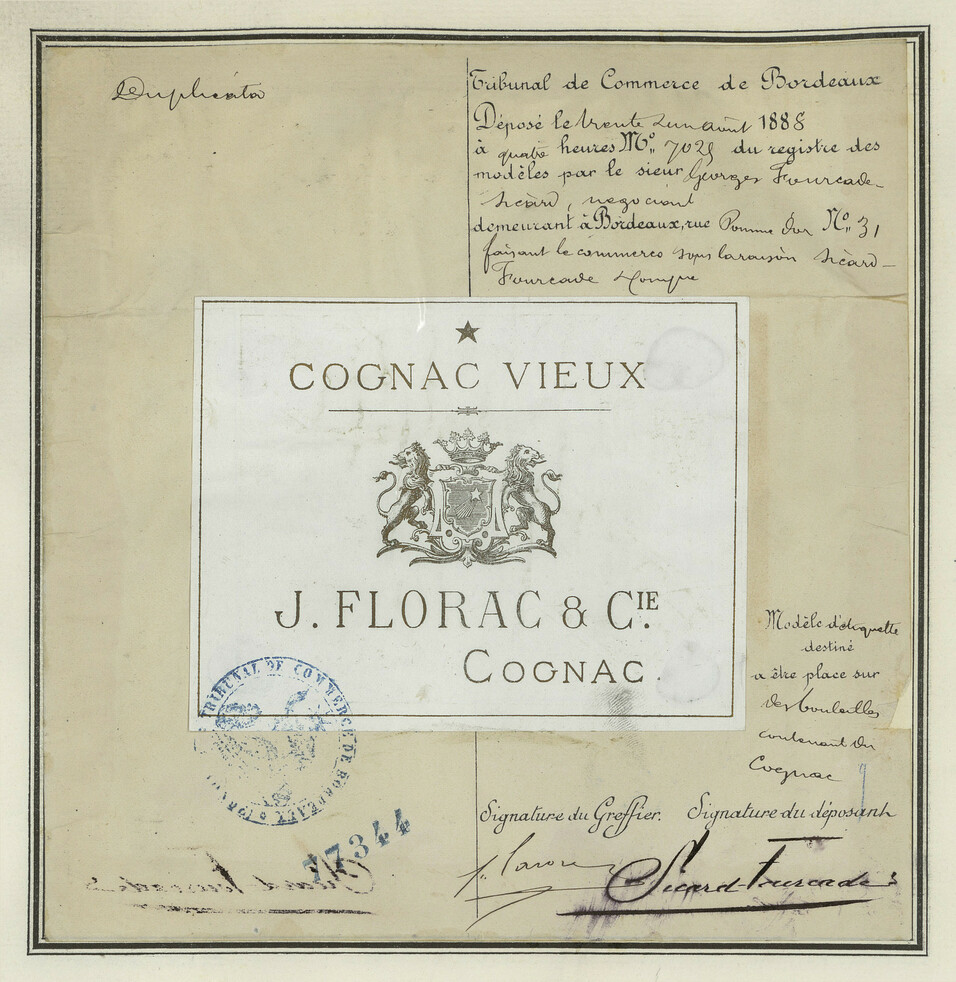 Duplicata
Tribunal de Commerce de Bordeaux
Déposé le trente un août 1888
à quatre heures No. du registre des
modèles par le sieur Georges Fourcade-
Sicard, négociant
demeurant à Bordeaux, rue Pomme d'or No. 31
faisant le commerce sous la raison Sicard-
Fourcade
COGNAC VIEUX
J. FLORAC & CIE.
COGNAC.
Modèle d'étiquette
destiné
a être placé sur
des bouteilles
contenant du
Cognac
TRIBUNAL DE COMMERCE DE BORDEAUX
Signature du Greffier. Signature du déposant
77344
Sicard-Fourcade